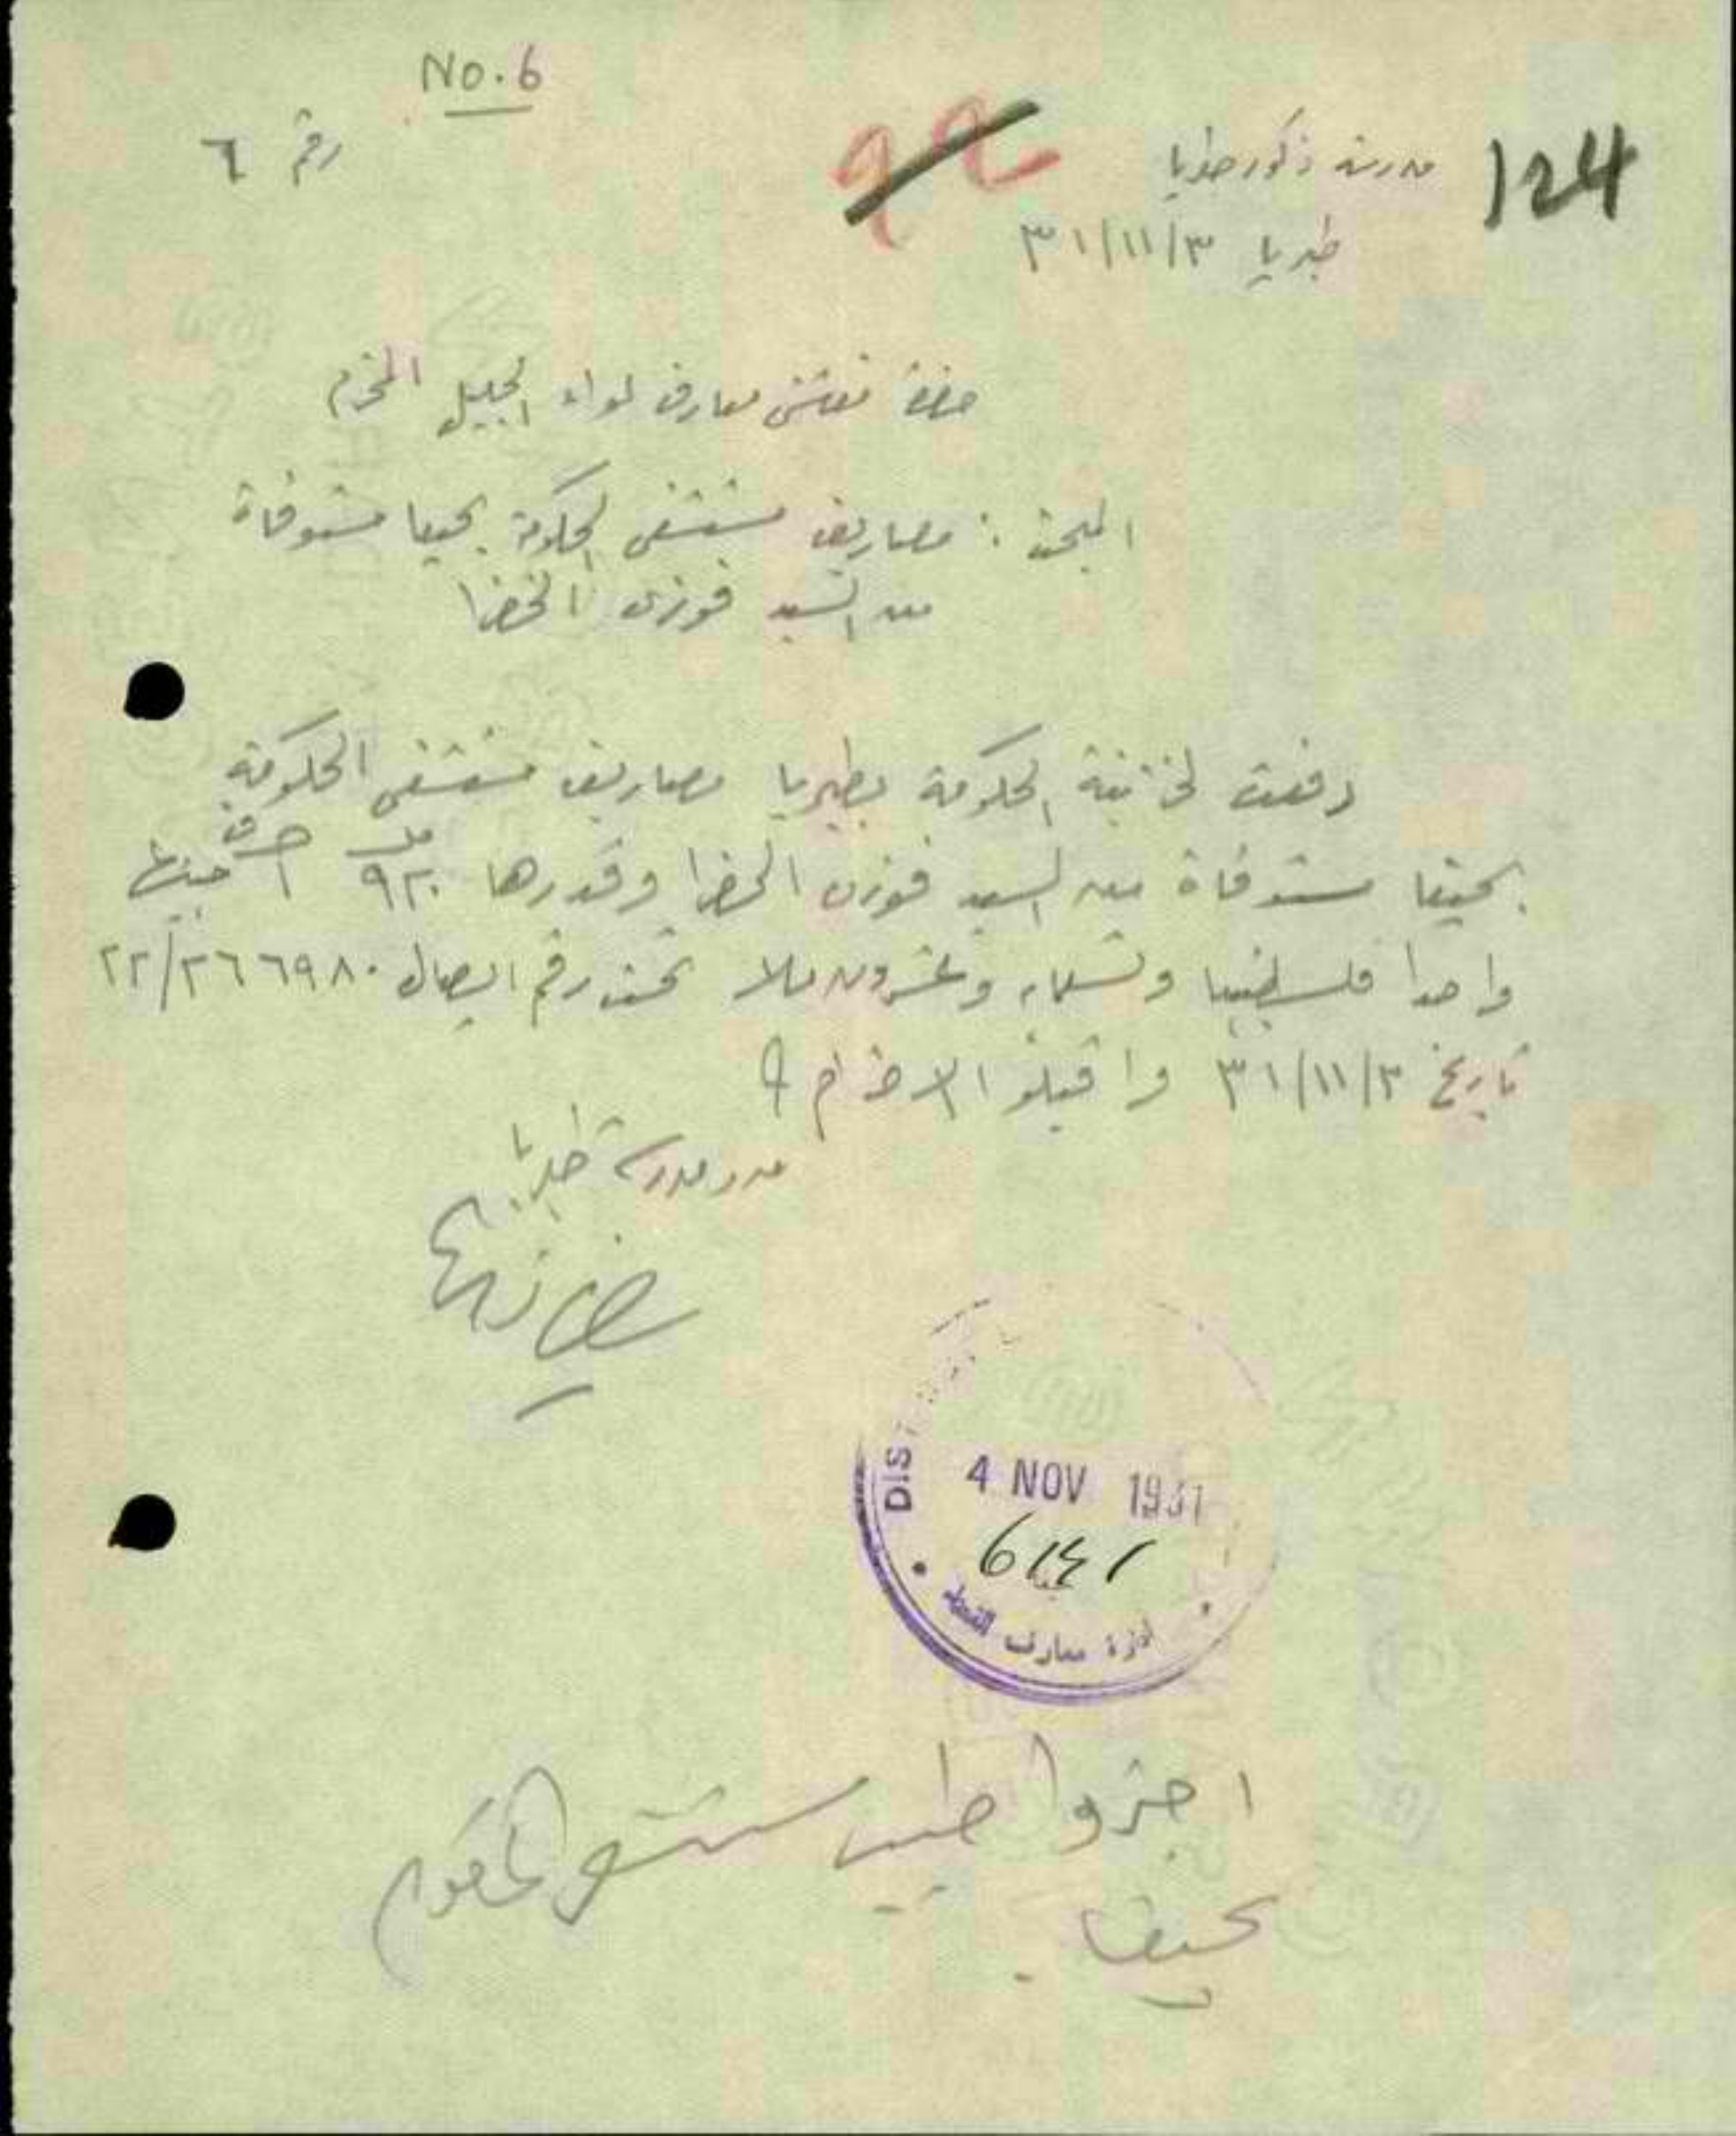 No. 6
رقم ٦
124
مدرسة ذكور طبريا
طبريا ٣١/١١/٣
حضرة مفتش معارف لواء الجليل المحترم
المبحث : مصاريف مستشفى الحكومة بحيفا مستوفاة
من السيد فوزي الخضرا
دفعت لخزينة الحكومة بطبريا مصاريف مستشفى الحكومة
بحيفا مستوفاة من السيد فوزي الخضرا وقدرها ٩٢٠ مل ١ جف جنيها
واحدا فلسطينيا وتسعماية وعشرون ملا تحت رقم ايصال ٢٢/٢٦٦٩٨٠
تاريخ ٣١/١١/٣ واقبلوا الاحترام
مدير مدرسة طبريا
DIS
4 NOV 1931
ادارة معارف القضاء
اخبروا طبيب مستشفى الحكومة
بحيفا